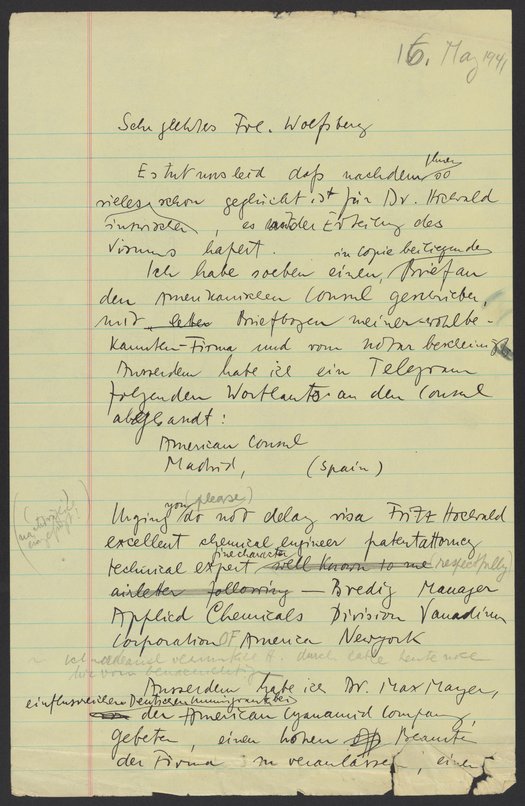 16. May 1941
Sehr geehrtes Frl. Wolfsberg
Es tut uns leid daß nachdem Ihnen so
vieles schon geglückt ist für Dr. Hochwald
inzwischen, es an der Erteilung des
Visums hapert.
in Copie beiliegenden
Ich habe soeben einen Brief an
den Amerikanischen Consul geschrieben,
mit Briefbogen meiner wohlbe-
kannten Firma und vom Notar bescheinigt
Ausserdem habe ich ein Telegram
folgenden Wortlauts an den Consul
abgesandt:
American Consul
Madrid, (Spain)
you (please)
Urging do not delay visa Fritz Hochwald
excellent chemical engineer patentattorney
fine character
technical expert well known to me (respectfully)
airletter following — Bredig Manager
Applied Chemicals Division Vanadium
Corporation OF America Newyork
Ausserdem habe ich Dr. Max Mayer,
einflussreichen Deutschen Immigranten bei
der American Cyanamid Company,
gebeten, einen hohen Beamten
der Firma zu veranlassen, einen